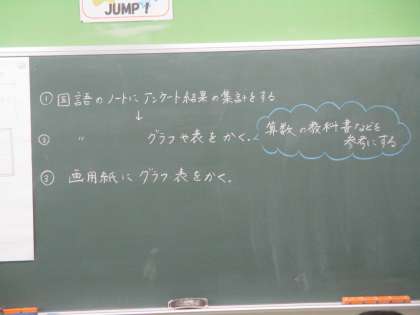 JUMP!
①国語のノートにアンケート結果の集計をする
↓
② 〃 グラフや表をかく。
算数の教科書などを
参考にする
③ 画用紙にグラフ表をかく。